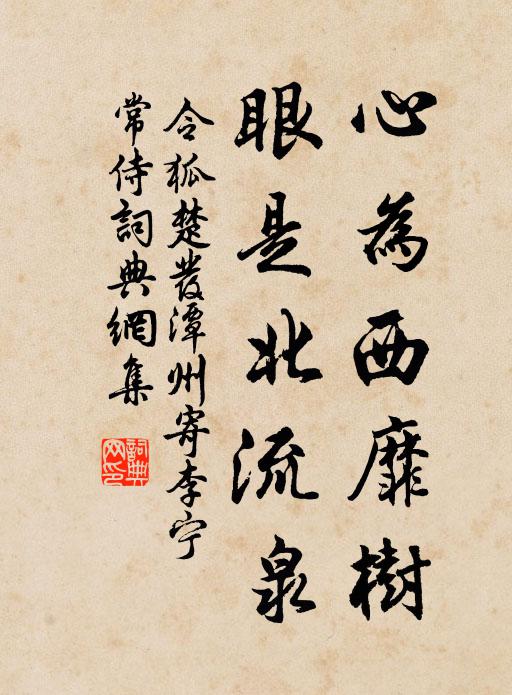 心為西靡樹
眼是北流泉
令狐楚發潭州寄李宁
常侍詞典網集
詞典
网印